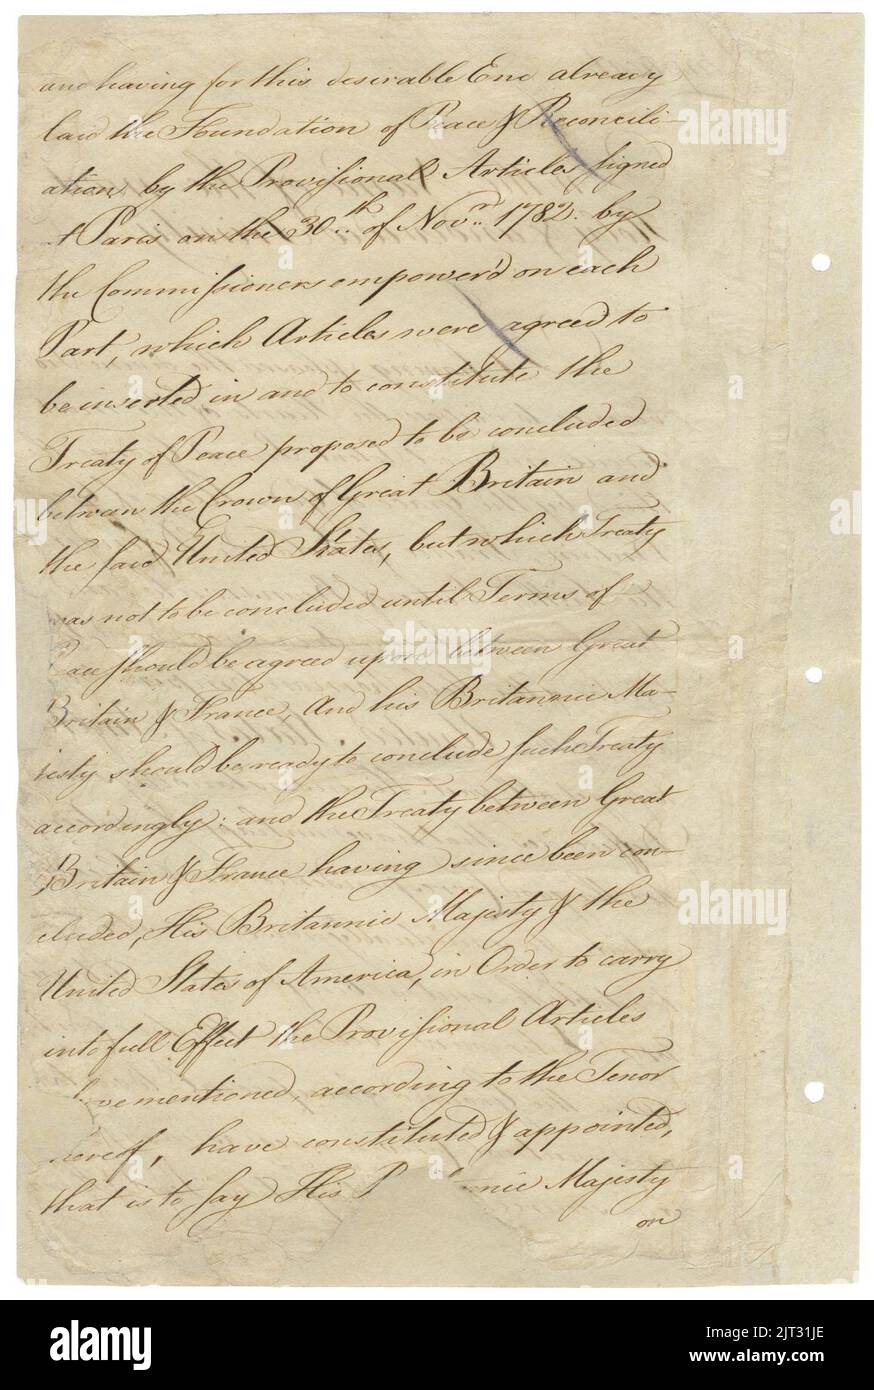 and having for this desirable End already
laid the Foundation of Peace & Reconcili-
ation, by the Provisional Articles, signed
at Paris on the 30.th of Nov.r 1782. by
the Commissioners empower'd on each
Part, which Articles were agreed to
be inserted in and to constitute the
Treaty of Peace proposed to be concluded
between the Crown of Great Britain and
the said United States, but which Treaty
was not to be concluded until Terms of
Peace should be agreed upon between Great
Britain & France, And his Britannic Ma-
jesty should be ready to conclude such Treaty
accordingly: and the Treaty between Great
Britain & France having since been con-
cluded, His Britannic Majesty & the
United States of America, in Order to carry
into full Effect the Provisional Articles
ve mentioned, according to the Tenor
hereof, have constituted & appointed,
that is to say His nnic Majesty
on
alamy
Image ID: 2JT31JE
www.alamy.com